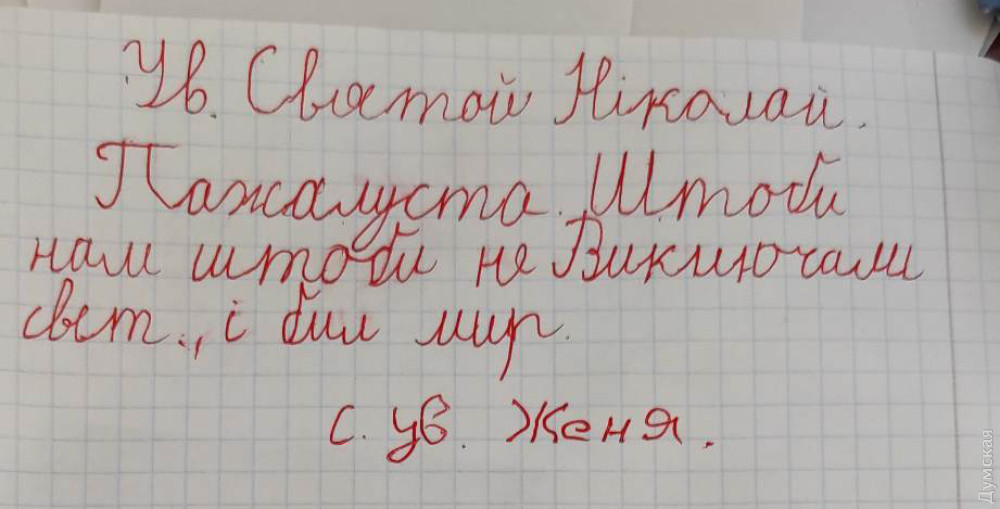 Ув. Святой Ніколай.
Пажалуста. Штоби
нам штоби не Виключалі
свет., і бил мир.
с. ув. Женя.
Думская